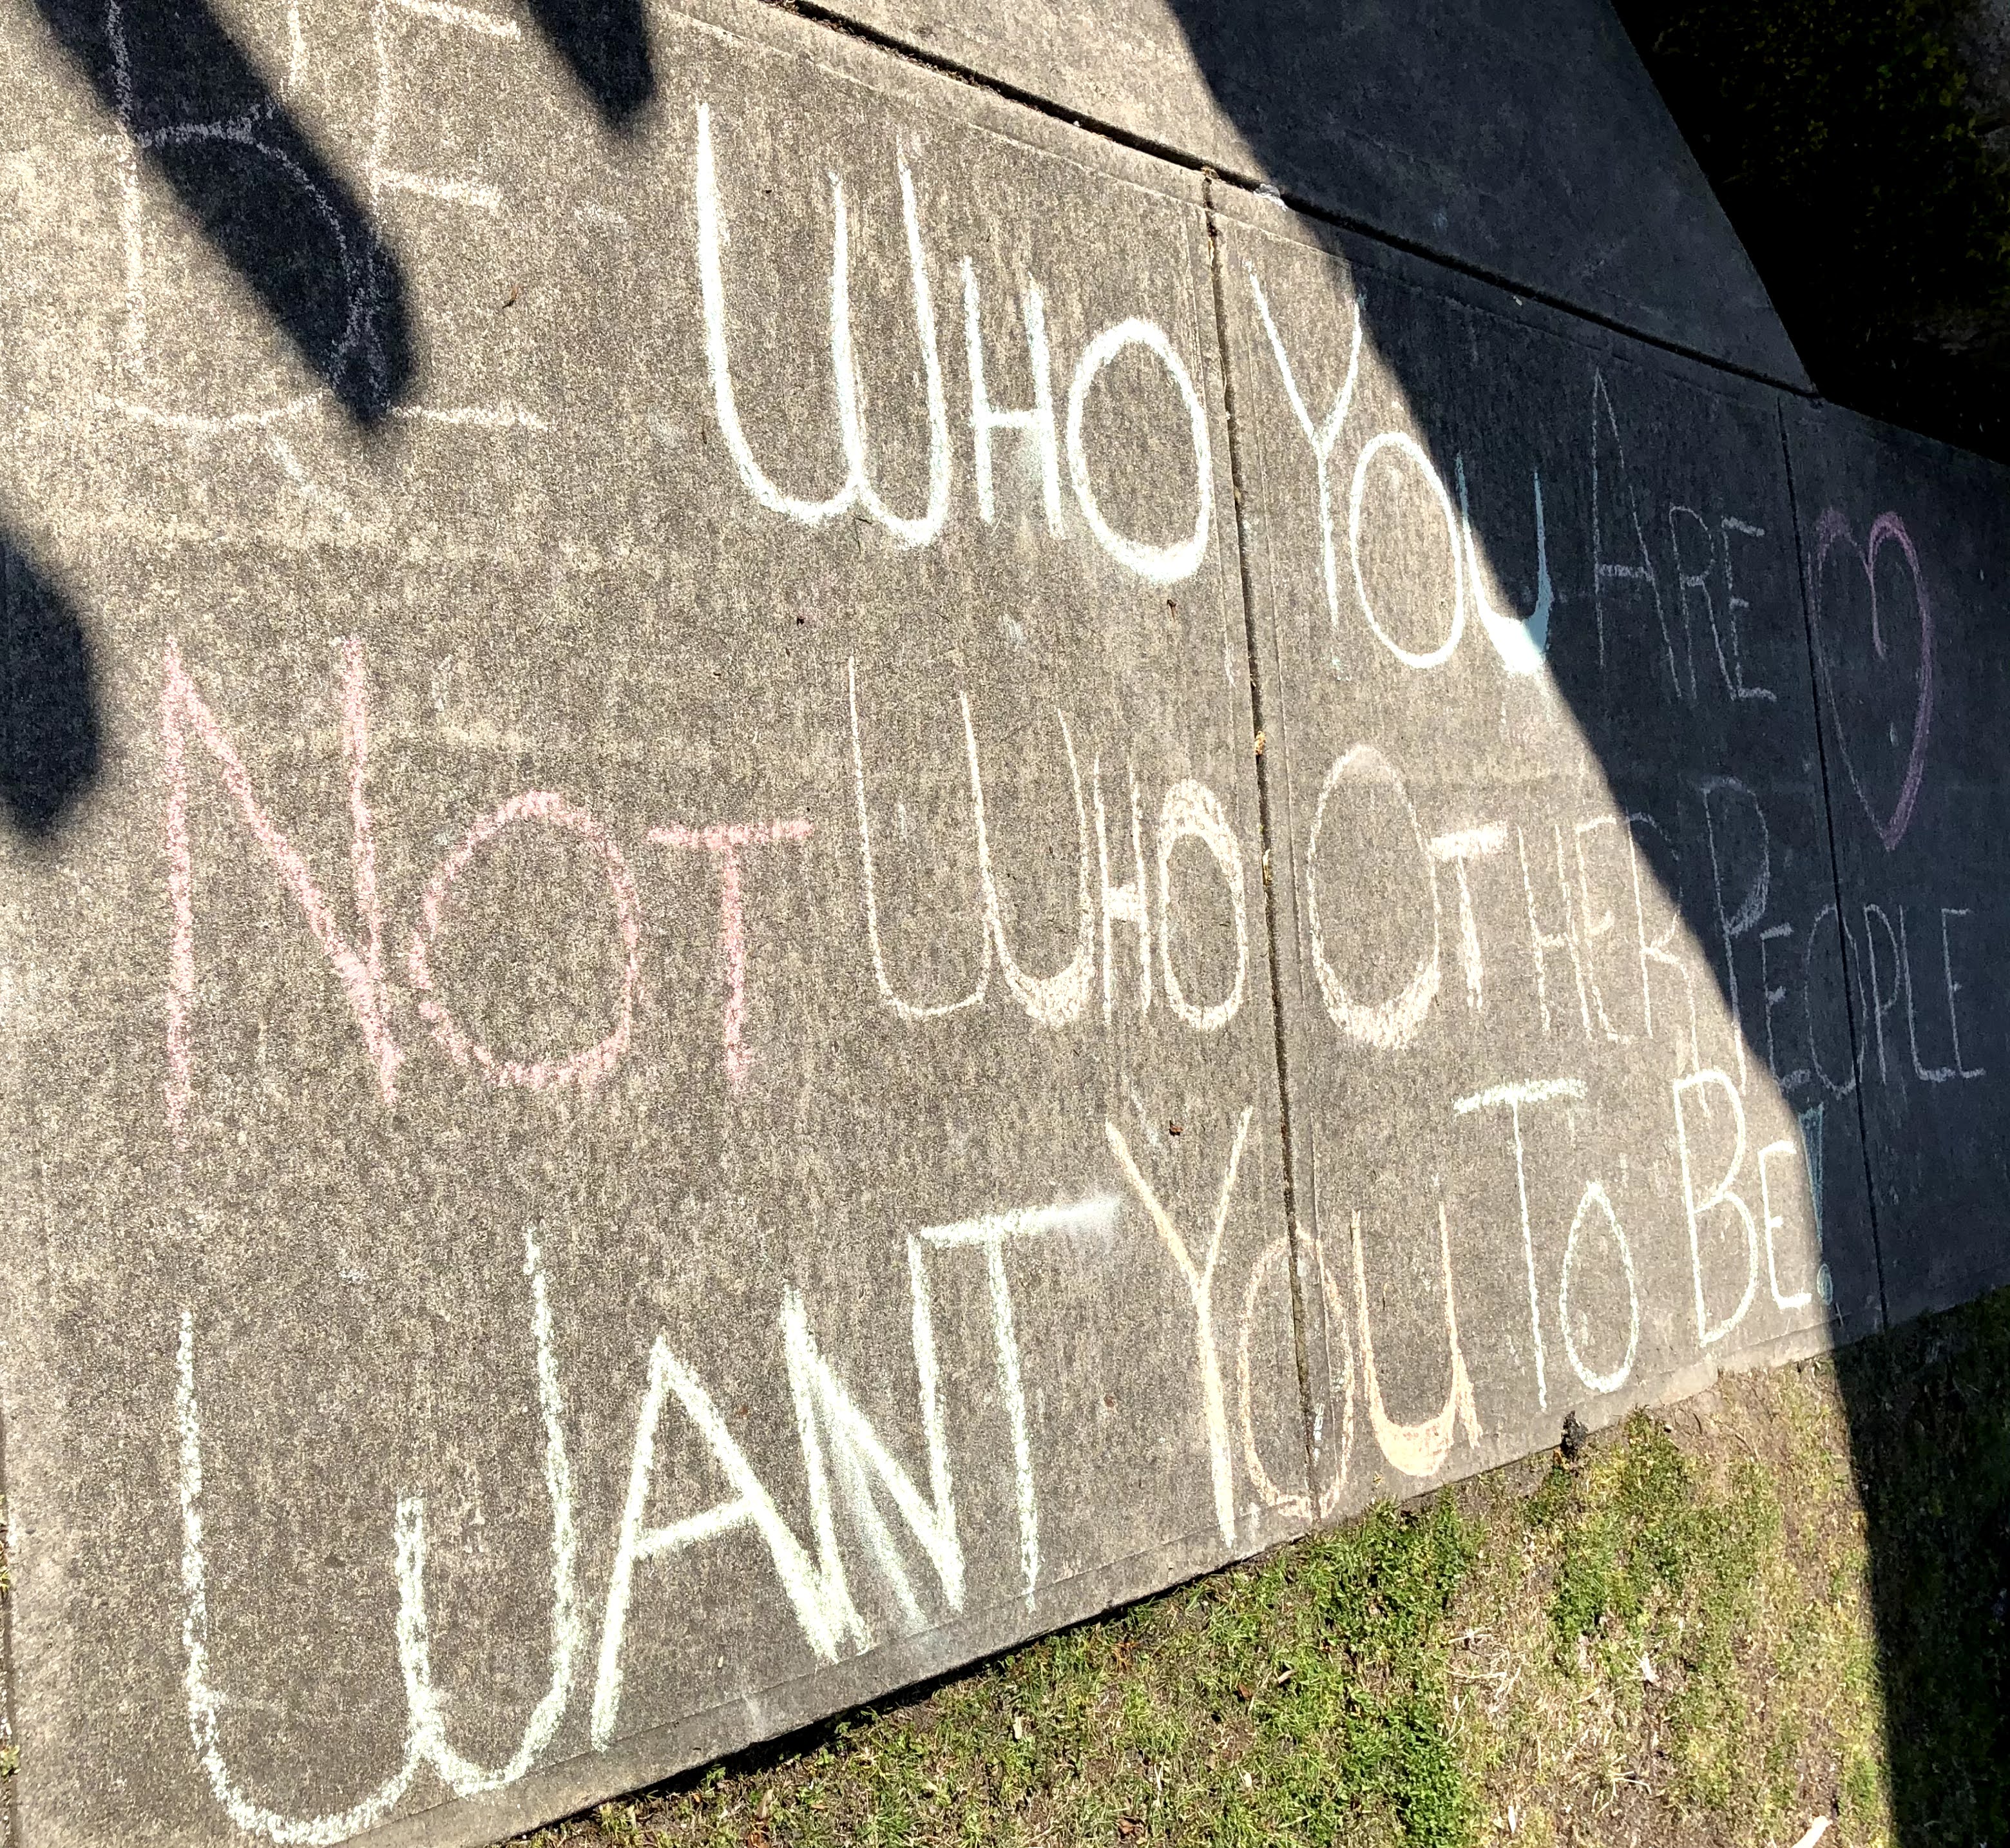 BE WHO YOU ARE
NOT WHO OTHER PEOPLE
WANT YOU TO BE!